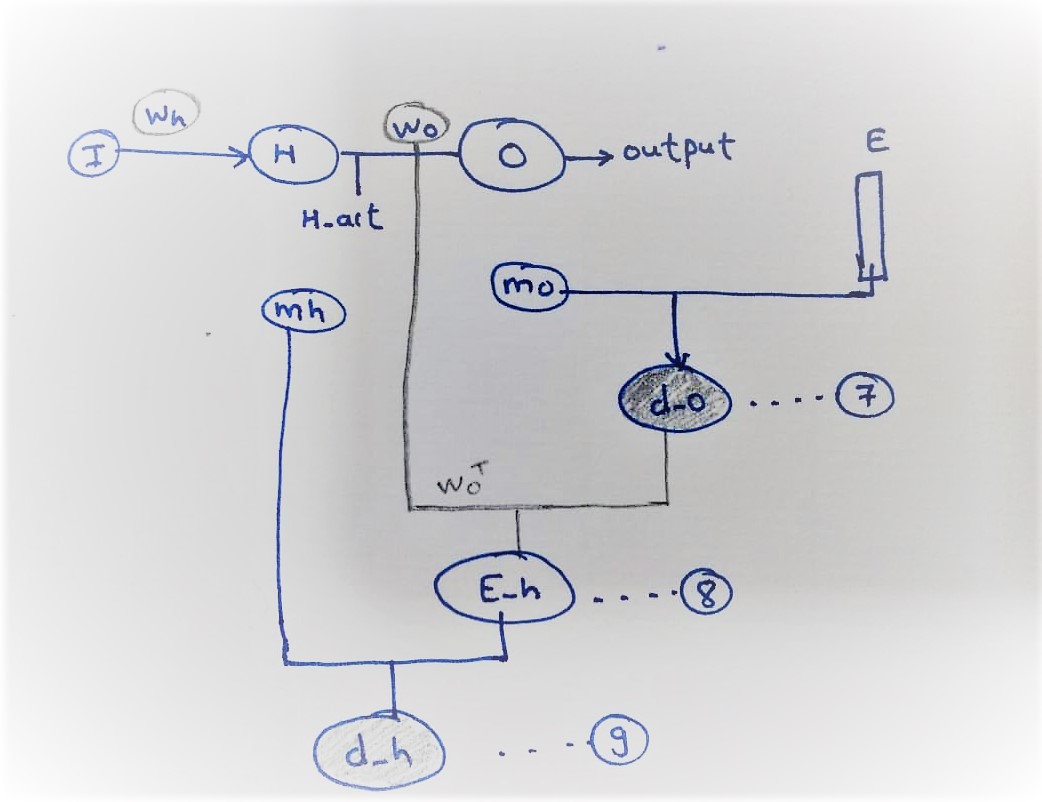 Wh
Wo
I
H
O
output
E
H_act
mo
mh
d_o
7
WoT
E_h
8
d_h
9